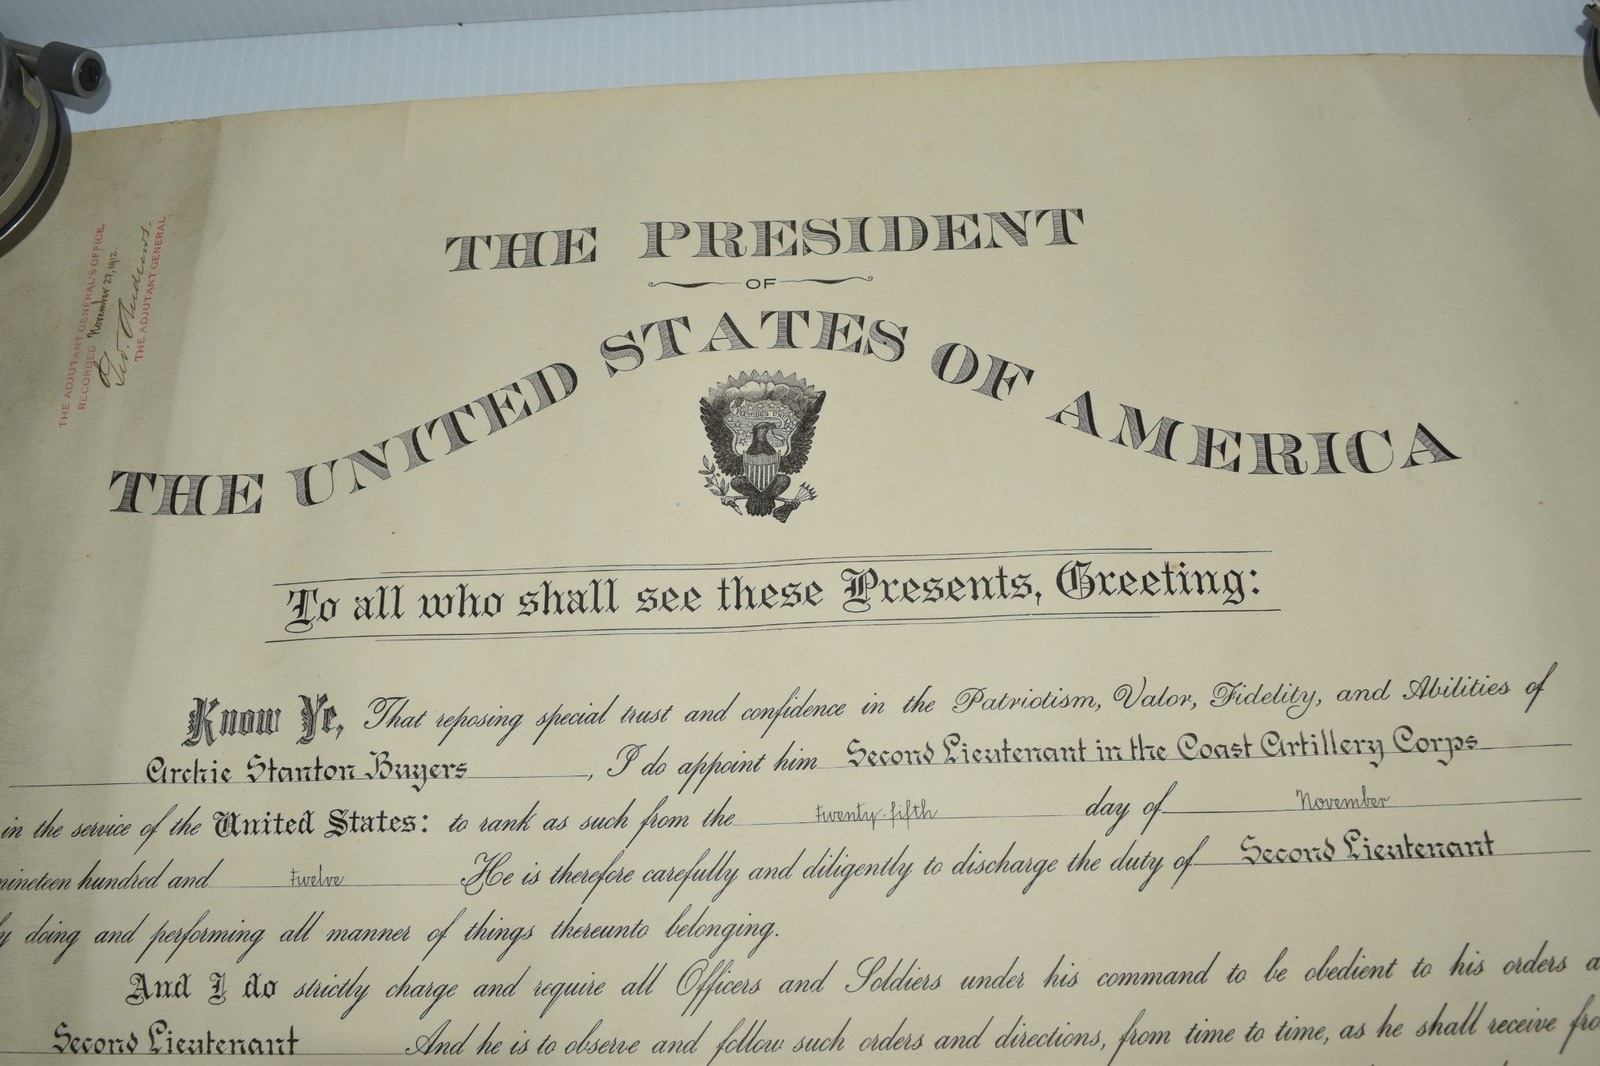 THE ADJUTANT GENERAL'S OFFICE,
RECORDED November 27, 1912.
Geo. Andrews.
THE ADJUTANT GENERAL.
THE PRESIDENT
OF
THE UNITED STATES OF AMERICA
To all who shall see these Presents, Greeting:
Know Ye, That reposing special trust and confidence in the Patriotism, Valor, Fidelity, and Abilities of
Archie Stanton Buyers, I do appoint him Second Lieutenant in the Coast Artillery Corps
in the service of the United States: to rank as such from the twenty-fifth day of November
nineteen hundred and twelve He is therefore carefully and diligently to discharge the duty of Second Lieutenant
doing and performing all manner of things thereunto belonging.
And I do strictly charge and require all Officers and Soldiers under his command to be obedient to his orders
Second Lieutenant And he is to observe and follow such orders and directions, from time to time, as he shall receive